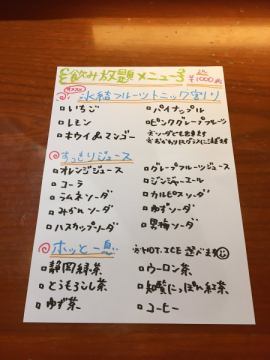 飲み放題メニュー
¥1000
氷結フルーツトニック割り
□いちご
□パイナップル
□レモン
□ピンクグレープフルーツ
□ホワイト&マンゴー
※ソーダでも出来ます
※おかわりはグラスに頂きます
すっきりジュース
□オレンジジュース
□グレープフルーツジュース
□コーラ
□ジンジャーエール
□ラムネソーダ
□カルピスソーダ
□みかんソーダ
□ゆずソーダ
□ハスカップソーダ
□男梅ソーダ
ホッと一息
※HOT・ICE 選べます
□静岡緑茶
□ウーロン茶
□とうもろこし茶
□知覧にっぽん紅茶
□ゆず茶
□コーヒー